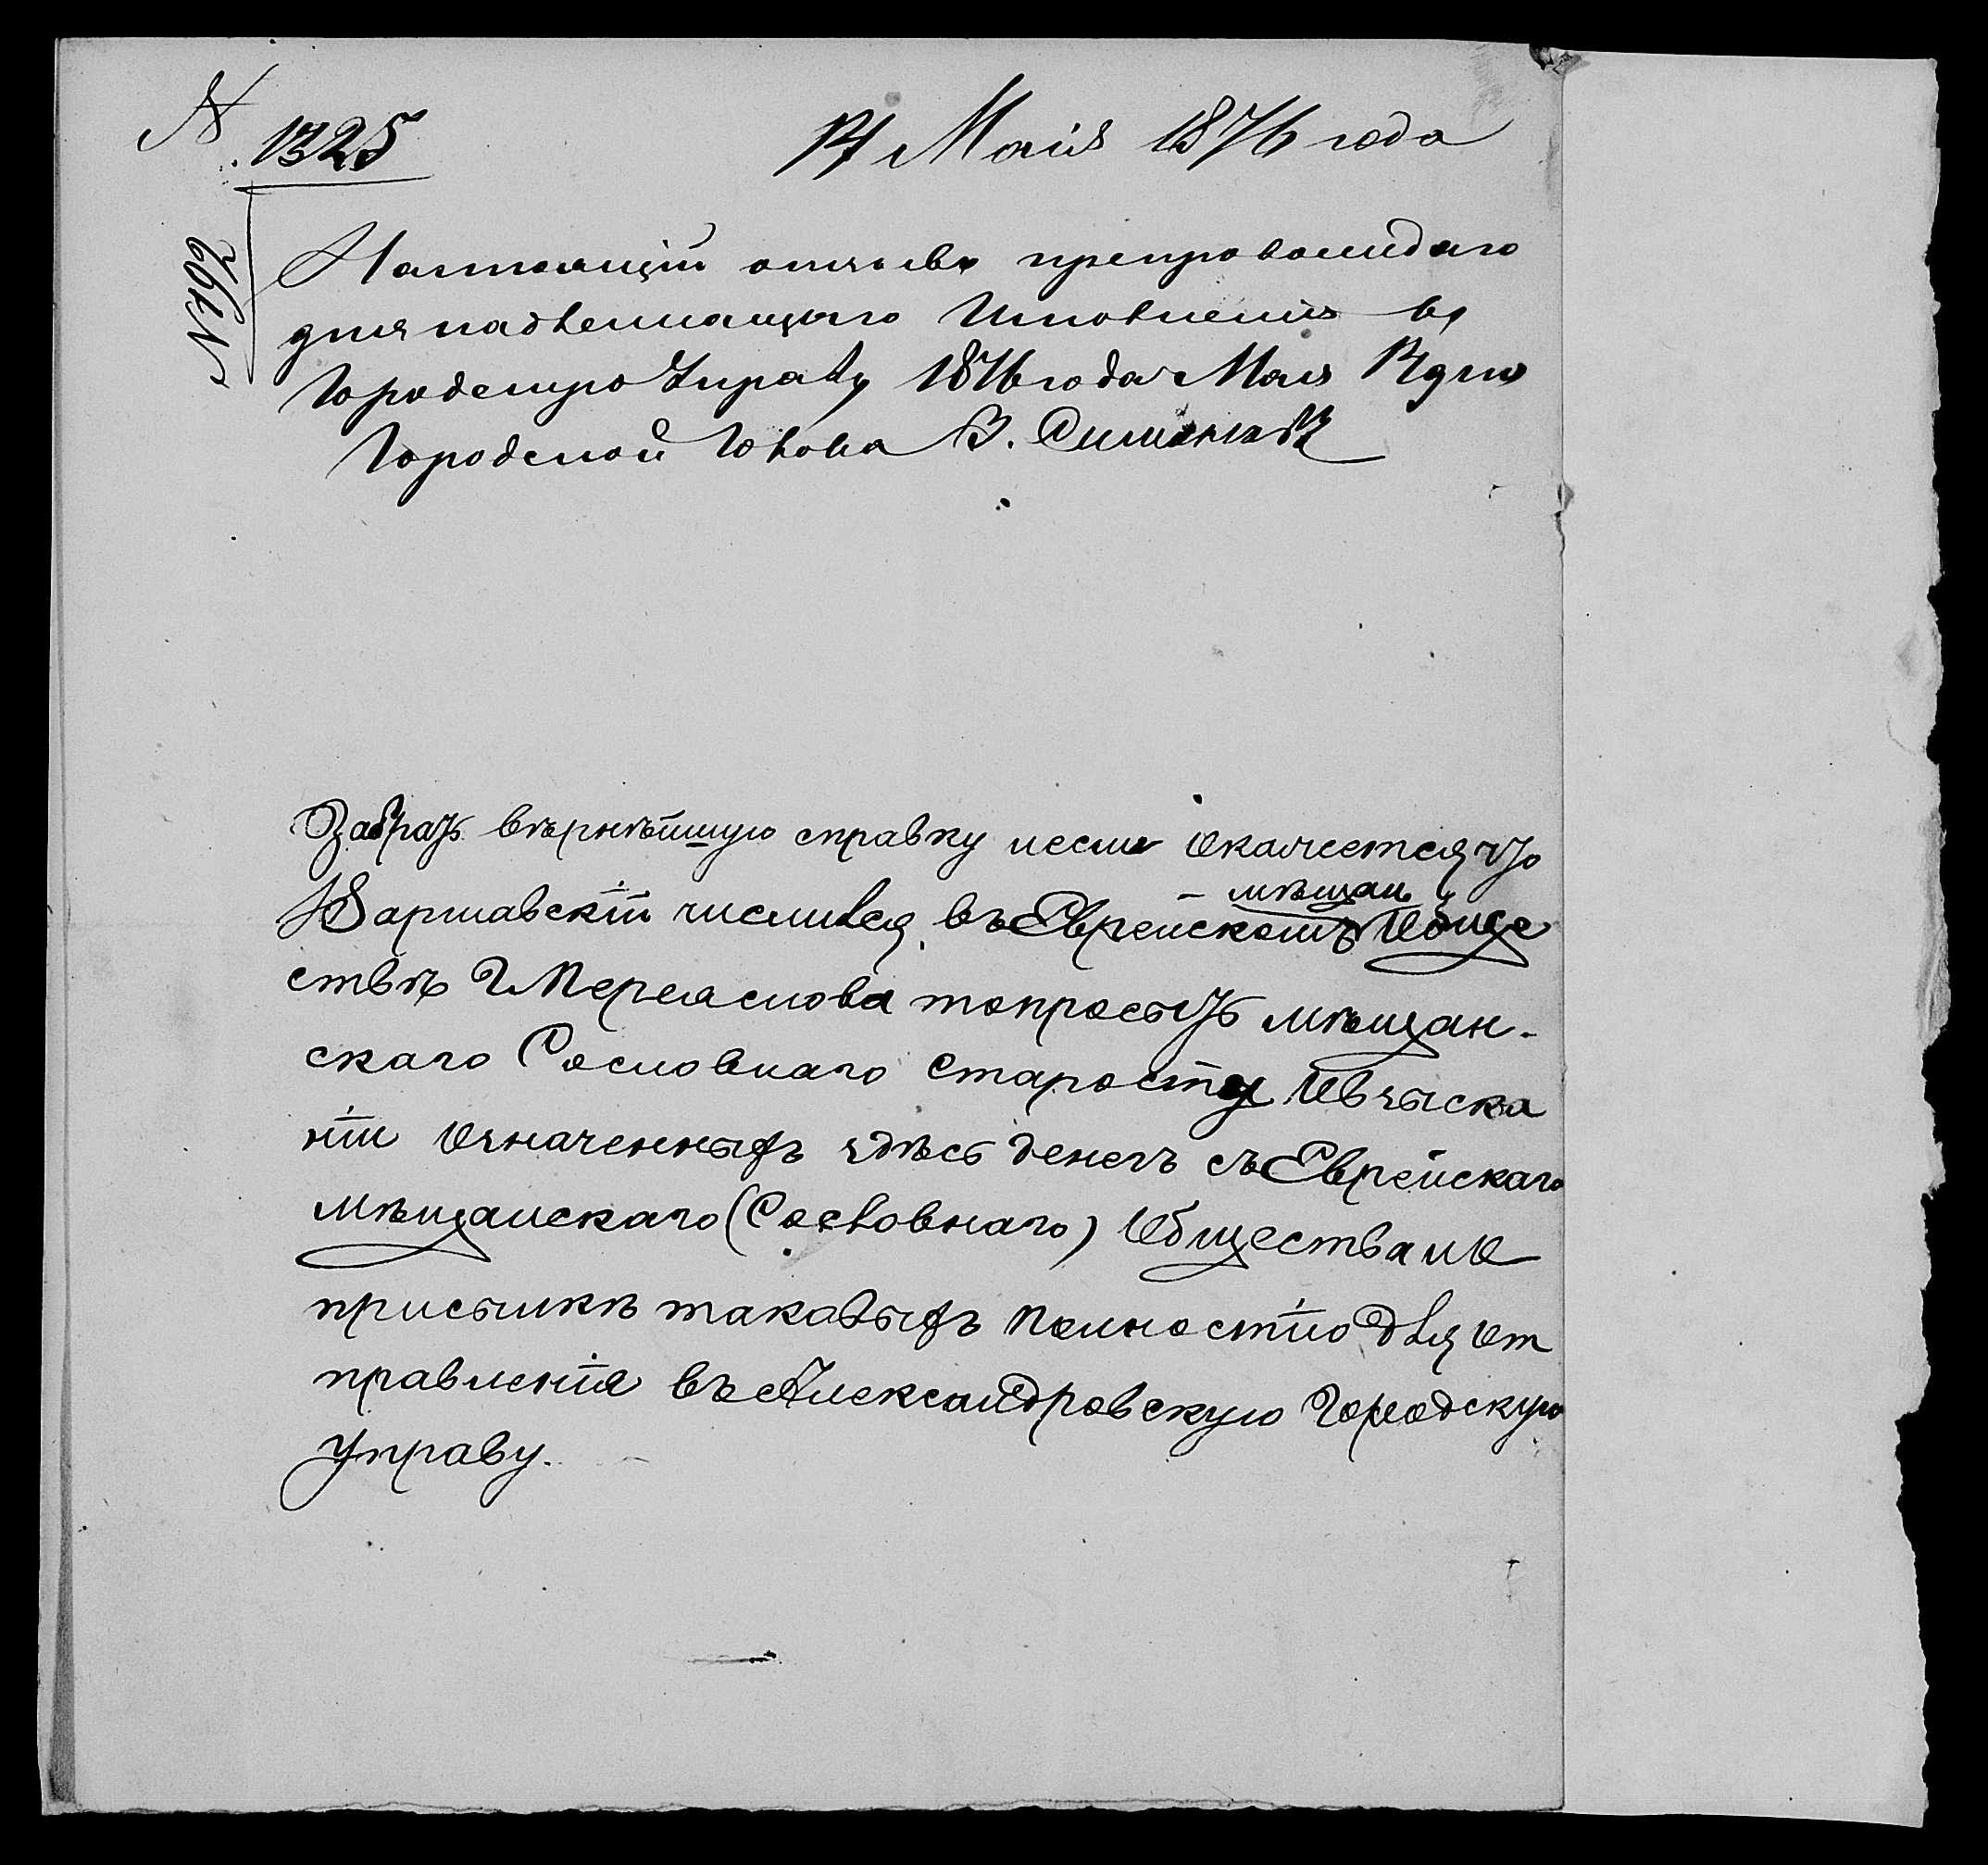 № 1325
17 Маія 1876 года
№792
Настоящій отзывъ препровождаю
для надлежащаго Исполненія въ
Городскую Управу 1876 года Мая 17 дня
Городской Голова В.
Забрать вѣрнѣйшую справку и если окажется что
Варшавскій числится въ Еврейскомъ мѣщан Обще
ствѣ г Переяслова то просыть мѣщан-
скаго Сословнаго старосту о взыска
ніи означенныхъ здѣсь денегъ съ Еврейскаго
мѣщанскаго (Сословнаго) Общества и о
присылкѣ таковыхъ полностію для от
правленія въ Александровскую Городскую
Управу.